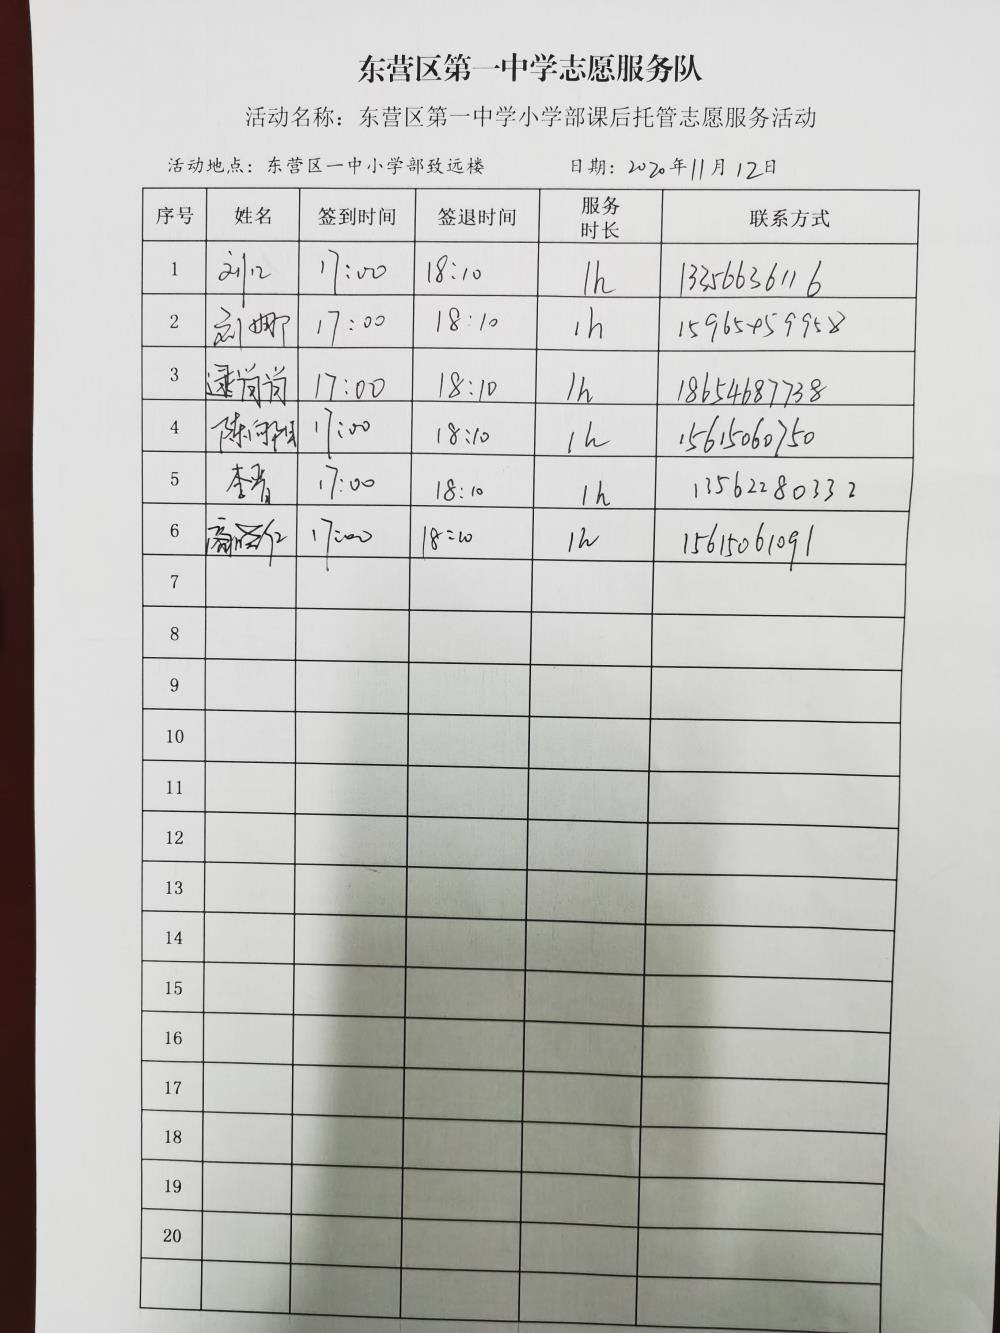 东营区第一中学志愿服务队
活动名称：东营区第一中学小学部课后托管志愿服务活动
活动地点：东营区一中小学部致远楼 日期：2020年11月12日
序号 姓名 签到时间 签退时间 服务时长 联系方式
1 刘 17:00 18:10 1h 13356636116
2 刘娜 17:00 18:10 1h 15965459958
3 逯茜茜 17:00 18:10 1h 18654687738
4 陈 17:00 18:10 1h 15615060750
5 李青 17:00 18:10 1h 13562280332
6 17:00 18:10 1h 15615061091
7
8
9
10
11
12
13
14
15
16
17
18
19
20